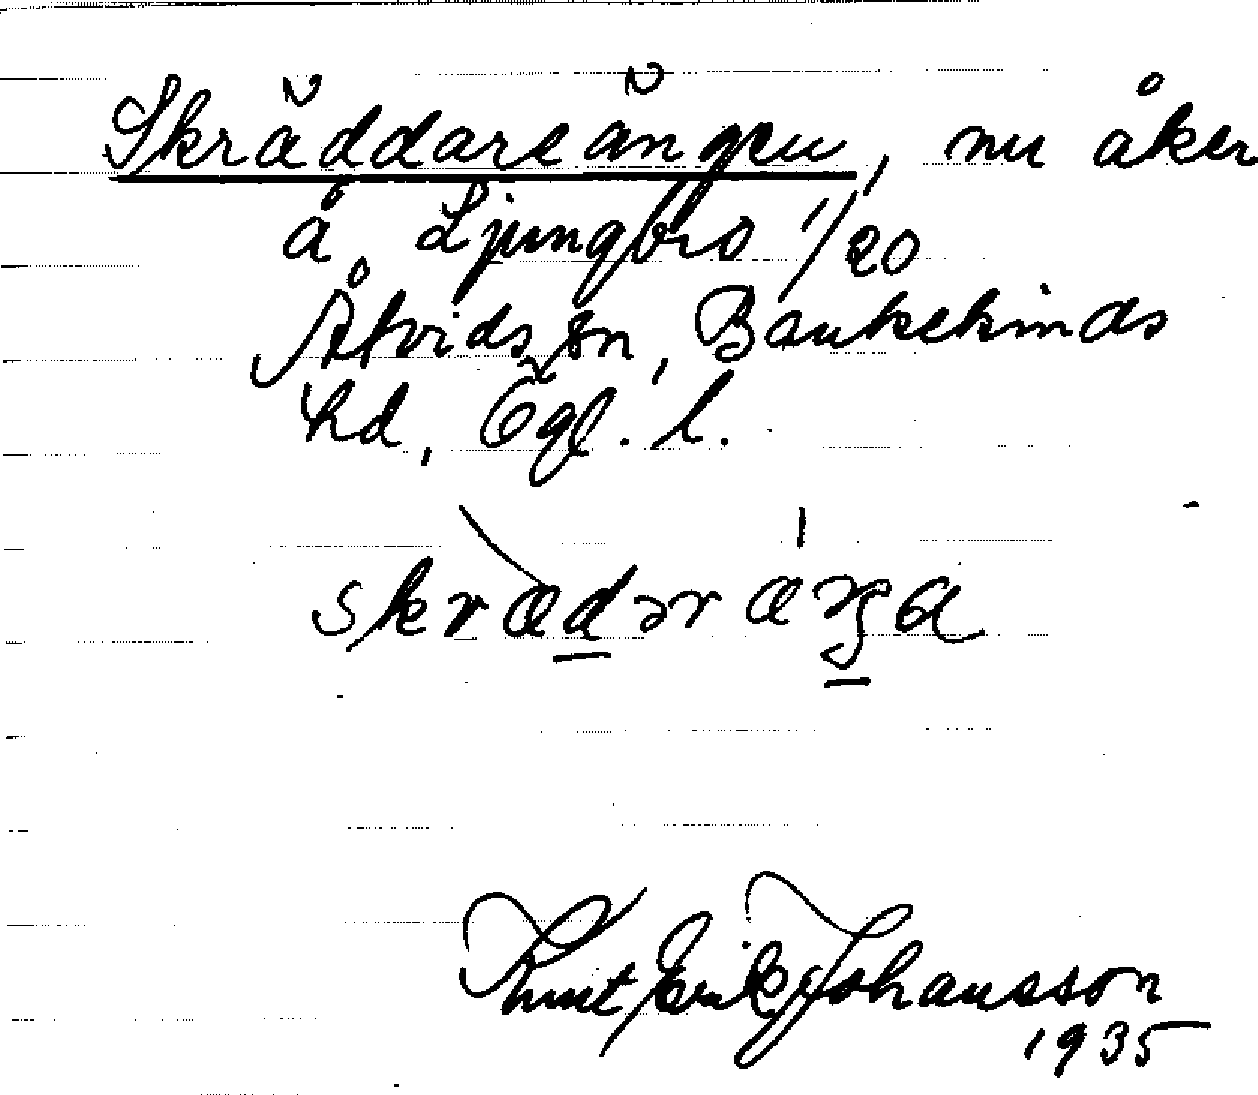 Skräddareängen, nu åker
å Ljungbro 1/20
Åtvids sn, Bankekinds
hd, Ögl. l.
skrædəræŋa
Knut Erik Johansson
1935